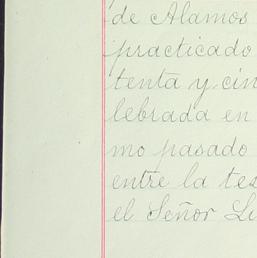 de Alamos
practicado
tenta y cin
lebrada en
mo pasado
entre la tes
el Señor Li